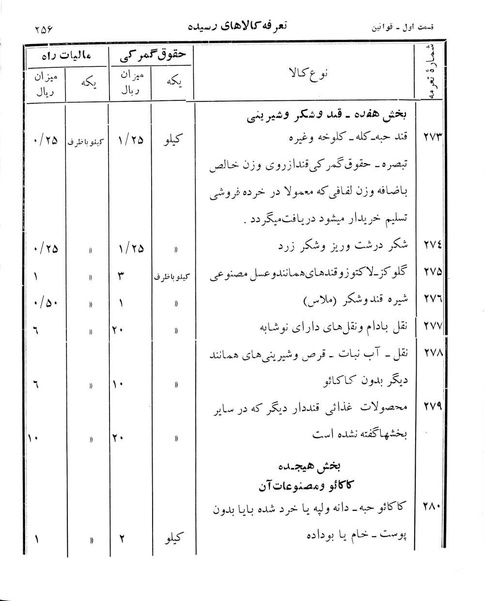 قسمت اول ــ قوانین تعرفه کالاهای رسیده ۲۵۶
شمارهٔ تعرفه نوع کالا حقوق گمرکی مالیات راه
یکه میزان ریال یکه میزان ریال
بخش هفده ــ قند وشکر وشیرینی
۲۷۳ قند حبه ــ کله ــ کلوخه وغیره کیلو ۱/۲۵ کیلو باظرف ۰/۲۵
تبصره ــ حقوق گمرکی قندازروی وزن خالص
باضافه وزن لفافی که معمولا در خرده فروشی
تسلیم خریدار میشود دریافت میگردد .
۲۷۴ شکر درشت وریز وشکر زرد » ۱/۲۵ » ۰/۲۵
۲۷۵ گلوکز ــ لاکتوز وقندهای همانند وعسل مصنوعی کیلو باظرف ۳ » ۱
۲۷۶ شیره قند وشکر (ملاس) » ۱ » ۰/۵۰
۲۷۷ نقل بادام ونقل‌های دارای نوشابه » ۲۰ » ۶
۲۷۸ نقل ــ آب نبات ــ قرص وشیرینی‌های همانند
دیگر بدون کاکائو » ۱۰ » ۶
۲۷۹ محصولات غذائی قنددار دیگر که در سایر
بخشها گفته نشده است » ۲۰ » ۱۰
بخش هیجده
کاکائو و مصنوعات آن
۲۸۰ کاکائو حبه ــ دانه ولپه یا خرد شده بایا بدون
پوست ــ خام یا بوداده کیلو ۲ » ۱